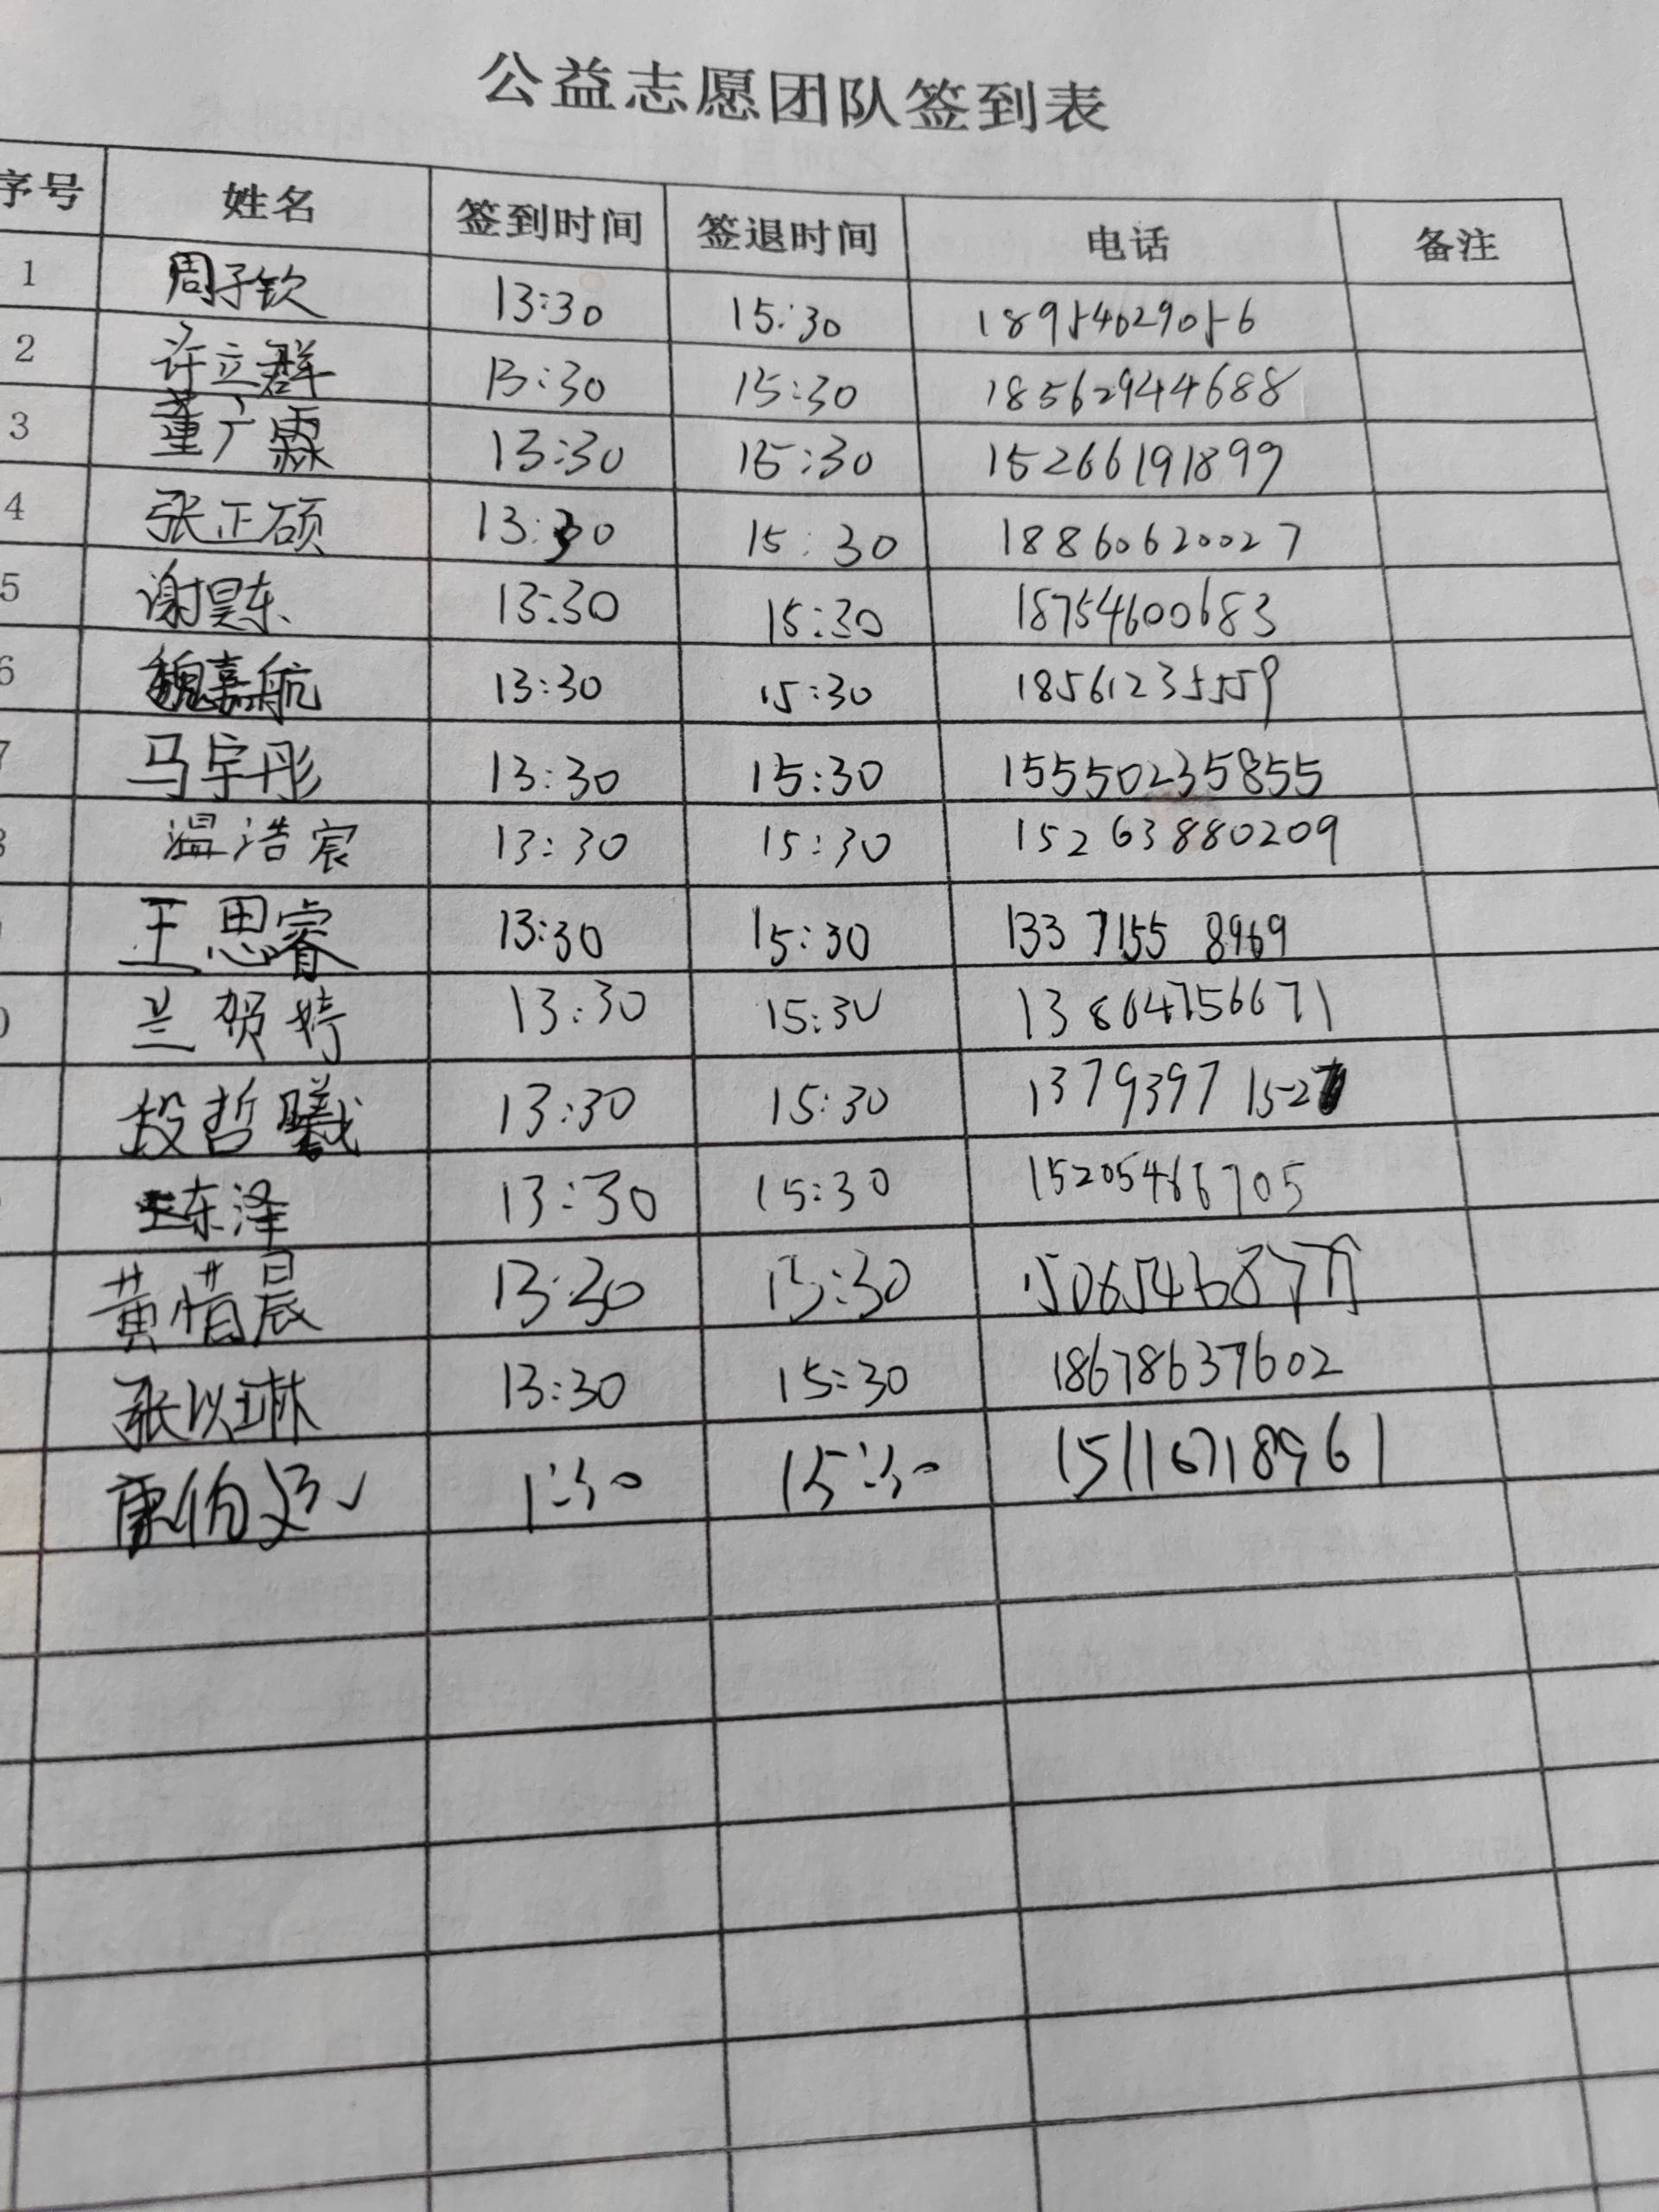 公益志愿团队签到表
序号 姓名 签到时间 签退时间 电话 备注
1 周子钦 13:30 15:30 18954629056
2 许立群 13:30 15:30 18562944688
3 董广霖 13:30 15:30 15266191899
4 张正硕 13:30 15:30 18860620027
5 谢昊东 13:30 15:30 18754600683
6 魏嘉航 13:30 15:30 18561235559
7 马宇彤 13:30 15:30 15550235855
温浩宸 13:30 15:30 15263880209
王思睿 13:30 15:30 133 7155 8969
0 兰贺婷 13:30 15:30 13804756671
段哲曦 13:30 15:30 1379397 1527
王东泽 13:30 15:30 15205466705
黄惜晨 13:30 15:30
张以琳 13:30 15:30 18678637602
康伯 1:30 15:30 15116718961